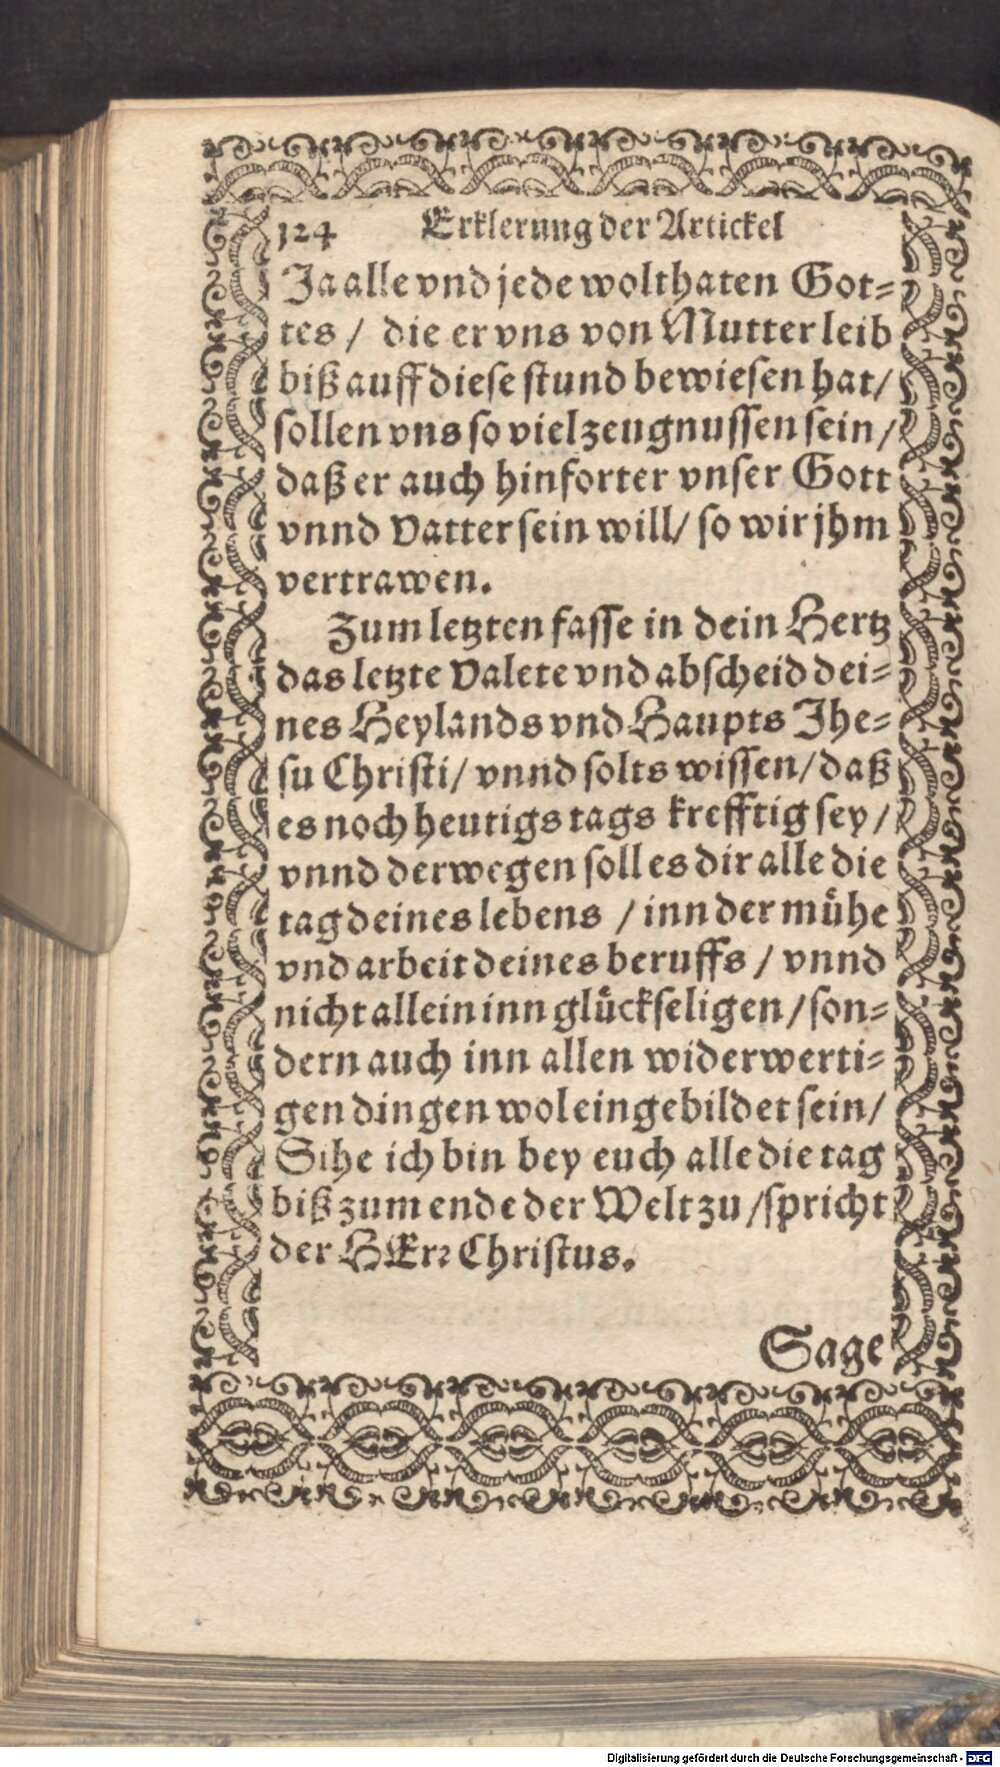 124 Erklerung der Artickel
Ja alle vnd jede wolthaten Got=
tes / die er vns von Mutter leib
biß auff diese stund bewiesen hat/
sollen vns so viel zeugnussen sein/
daß er auch hinforter vnser Gott
vnnd Vatter sein will/ so wir jhm
vertrawen.
Zum letzten fasse in dein Hertz
das letzte Valete vnd abscheid dei=
nes Heylands vnd Haupts Jhe=
su Christi/ vnnd solts wissen/ daß
es noch heutigs tags krefftig sey/
vnnd derwegen soll es dir alle die
tag deines lebens / inn der mühe
vnd arbeit deines beruffs / vnnd
nicht allein inn glückseligen / son=
dern auch inn allen widerwerti=
gen dingen wol eingebildet sein/
Sihe ich bin bey euch alle die tag
biß zum ende der Welt zu / spricht
der HErr Christus.
Sage
Digitalisierung gefördert durch die Deutsche Forschungsgemeinschaft - DFG